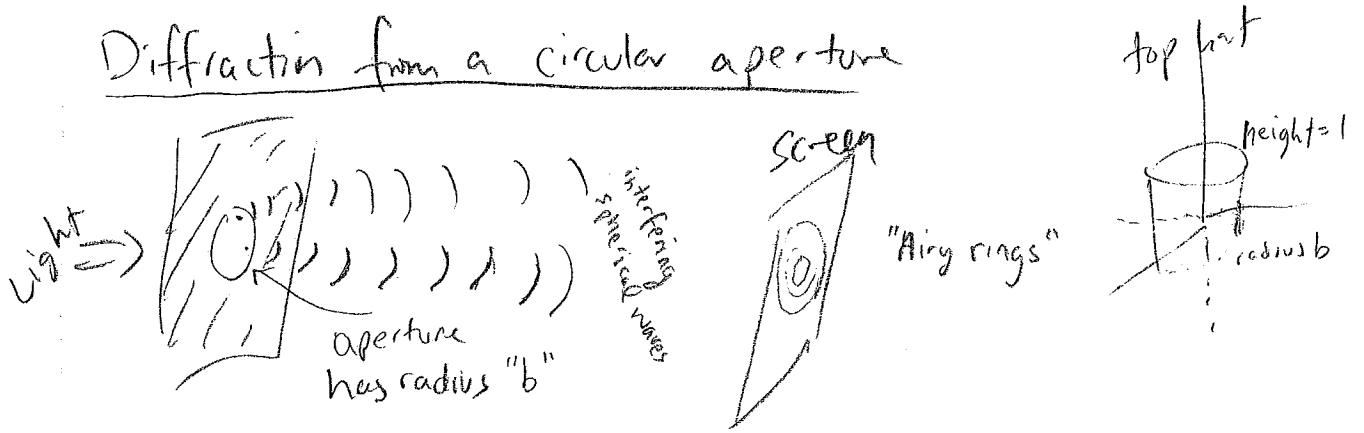 Diffractin from a circular aperture
top hat
height=1
radius b
Light
aperture
has radius "b"
interfering
spherical waves
screen
"Airy rings"